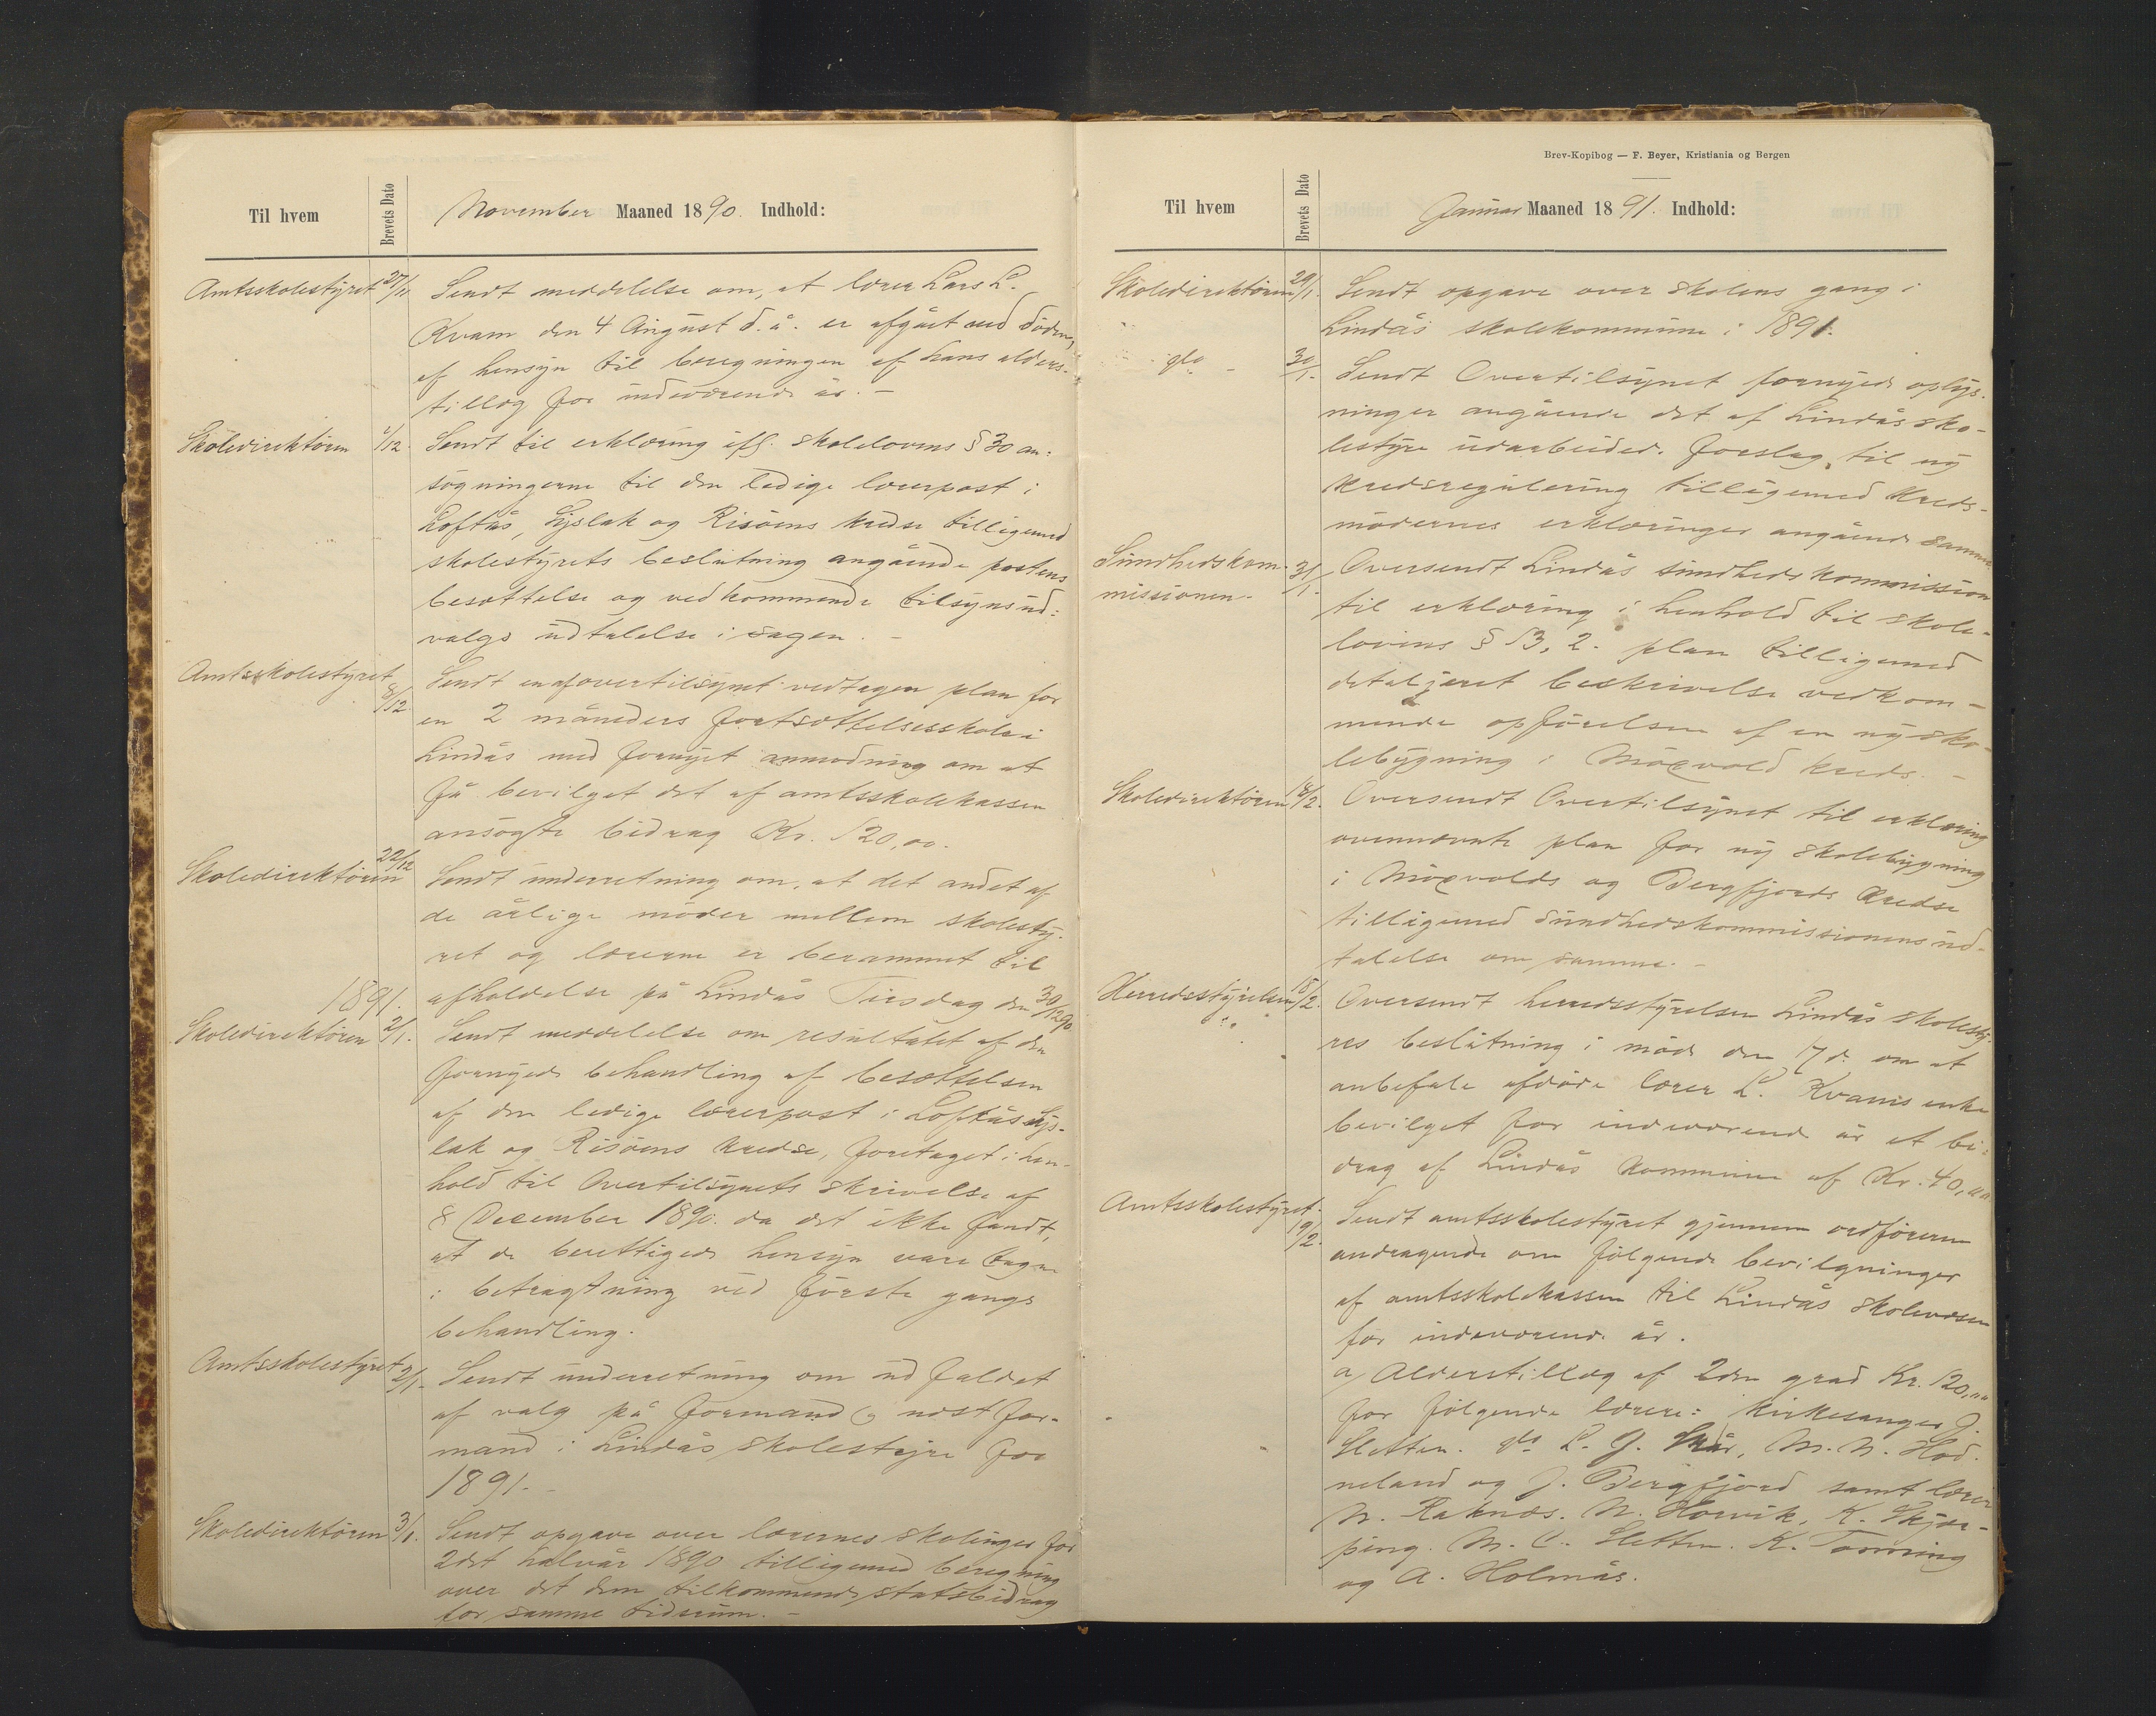 Til hvem
Brevets Dato
November Maaned 1890. Indhold:
Amtsskolestyret 27/11 Sendt meddelelse om, at lærer Lars L.
Kvam den 4 August d. å. er afgået ved døden,
af hensyn til beregningen af hans alders-
tillæg for indeværende år. -
Skoledirektøren 1/12. Sendt til erklæring ifl. skolelovens § 30 an-
søgningerne til den ledige lærerpost i
Loftås, Syslak og Risöens kredse tilligemed
skolestyrets beslutning angående postens
besættelse og vedkommende tilsynsud-
valgs udtalelse i sagen. -
Amtsskolestyret 8/12 Sendt en af overtilsynet vedtagen plan for
en 2 måneders fortsættelsesskole i
Lindås med fornyet anmodning om at
få bevilget det af amtsskolekassen
ansøgte bidrag Kr. 120,00.
Skoledirektøren 22/12 Sendt underretning om, at det andet af
de årlige møder mellem skolesty-
ret og lærerne er berammet til
afholdelse på Lindås Tirsdag den 30/12 90
1891.
Skoledirektøren 2/1. Sendt meddelelse om resultatet af den
fornyede behandling af besættelsen
af den ledige lærerpost i Loftås Sys-
lak og Risöens kredse, foretaget i hen-
hold til Overtilsynets skrivelse af
8 December 1890. da det ikke fandt,
at de berettigede hensyn vare tagne
i betragtning ved første gangs
behandling.
Amtsskolestyret 2/1. Sendt underretning om udfaldet
af valg på formand og næstfor-
mand i Lindås skolestyre for
1891. -
Skoledirektøren 3/1. Sendt opgave over lærernes skolinger for
2det halvår 1890 tilligemed beregning
over det dem tilkommende statsbidrag
for samme tidsrum. -
Brev-Kopibog — F. Beyer, Kristiania og Bergen
Til hvem
Brevets Dato
Januar Maaned 1891. Indhold:
Skoledirektøren 29/1. Sendt opgave over skolens gang i
Lindås skolekommune i 1891.
do - 30/1. Sendt Overtilsynet fornyede oplys-
ninger angående det af Lindås sko-
lestyre udarbeidede forslag til ny
kredsregulering tilligemed kreds-
mødernes erklæringer angående samme.
Sundhedskom- 31/1. Oversendt Lindås sundhedskommission
missionen. til erklæring i henhold til skole-
lovens § 53, 2. plan tilligemed
detaljeret beskrivelse vedkom-
mende opførelsen af en ny sko-
lebygning i Moxvold kreds. -
Skoledirektøren 18/2. Oversendt Overtilsynet til erklæring
ovennævnte plan for ny skolebygning
i Moxvolds og Bergfjords kredse
tilligemed sundhedskommissionens ud-
talelse om samme. -
Herredsstyrelsen 18/2. Oversendt herredsstyrelsen Lindås skolesty-
res beslutning i møde den 17 d. om at
anbefale afdøde lærer L. Kvams enke
bevilget for indeværende år et bi-
drag af Lindås kommune af Kr. 40,00
Amtsskolestyret. 19/2. Sendt amtsskolestyret gjennem ordføreren
andragende om følgende bevilgninger
af amtsskolekassen til Lindås skolevæsen
for indeværende år.
a) Alderstillæg af 2den grad Kr. 120,00
for følgende lærere: kirkesanger J.
Sletten. do L. J. Skår, M. N. Hod-
neland og J. Bergfjord samt lærer
N. Raknæs. N. Horvik. K. Skjær-
ping. M. C. Sletten. K.
og A. Holmås.